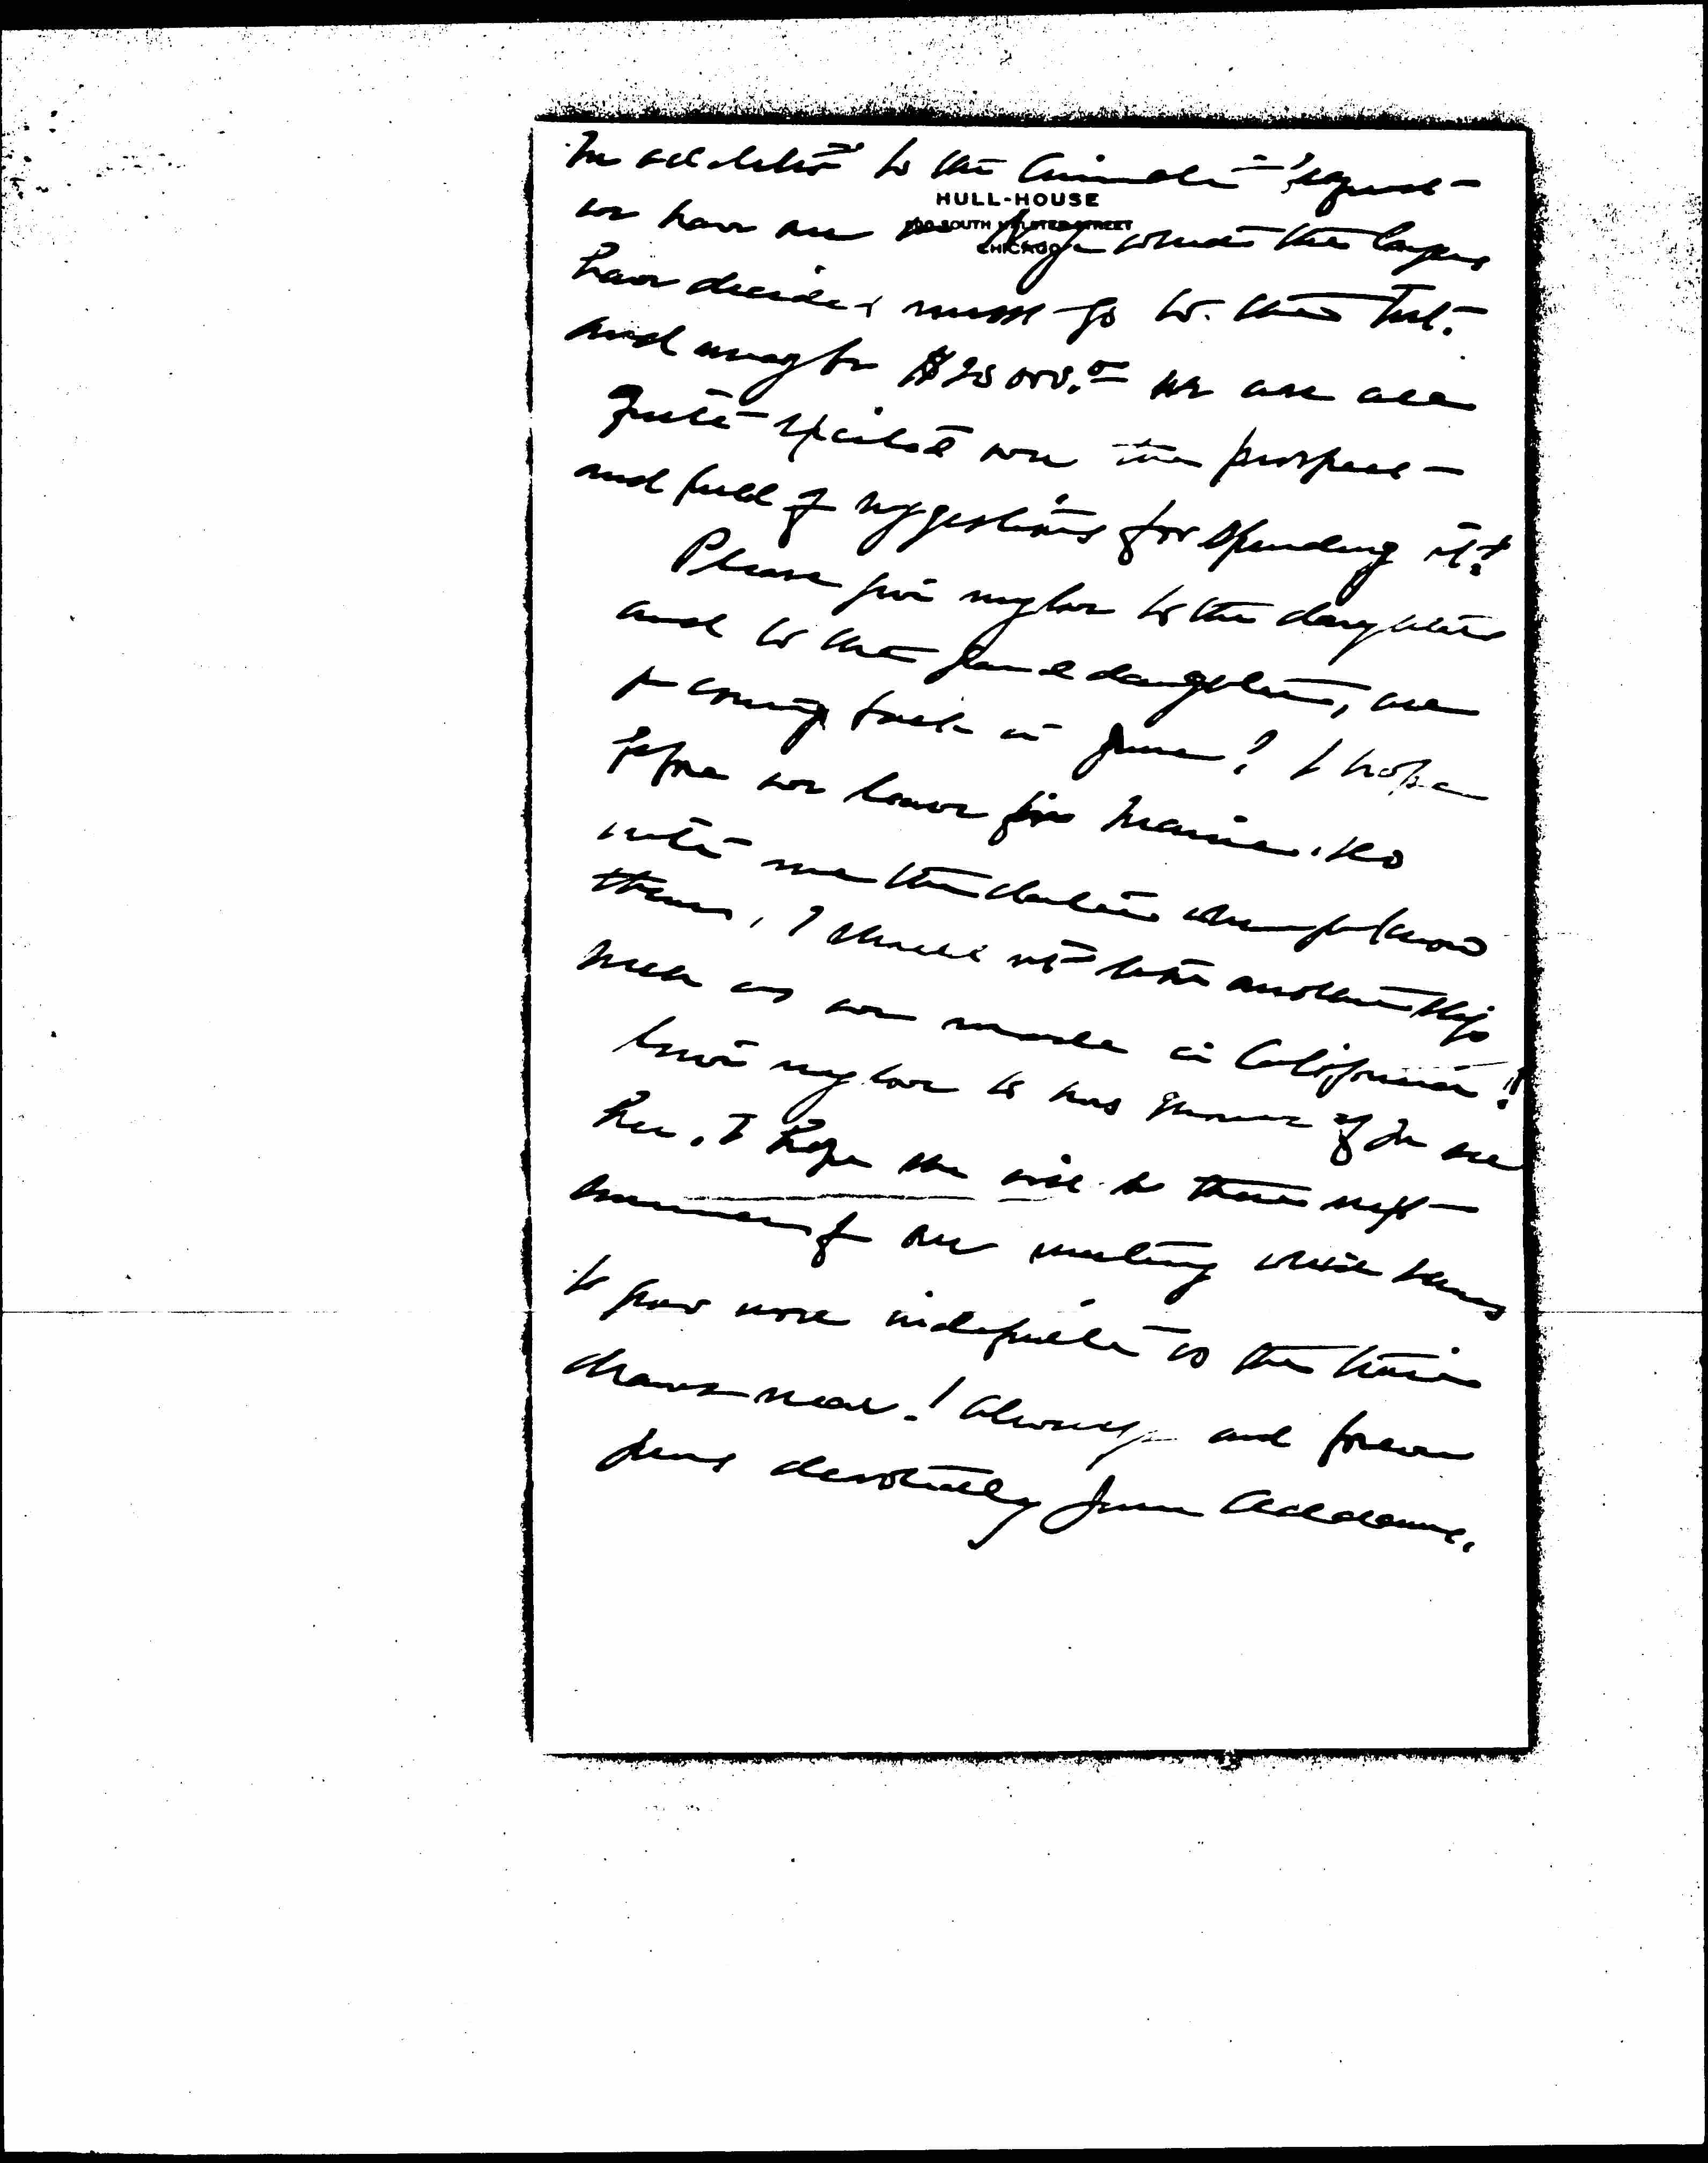 In addition to the Cincinnati bequest
HULL-HOUSE
800 SOUTH HALSTED STREET
CHICAGO
we have one in which the lawyers
have decided must go to the Int.
and may be $25000.00 we are all
quite excited over the prospect
and full of suggestions for spending it!
Please give my love to the daughters
and to the granddaughters, are
you coming back in June? I hope
before we leave for Maine. Do
write me the dates when you know
them, I shall not take another trip
such as we made in California!!
Give my love to Mrs if you see
her. I hope she will be there next
summer for our meeting which seems
to grow more indefinite as the time
draws near! Always and forever
yours devotedly Jane Addams.